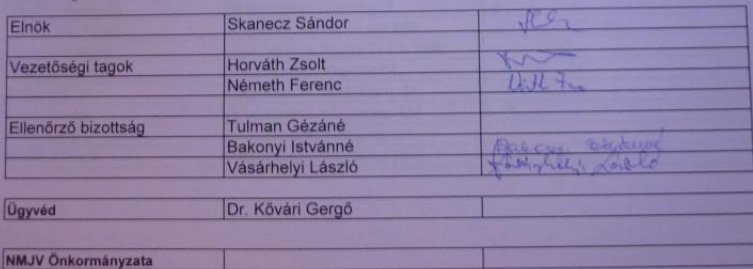 Elnök Skanecz Sándor
Vezetőségi tagok Horváth Zsolt
Németh Ferenc
Ellenőrző bizottság Tulman Gézáné
Bakonyi Istvánné
Vásárhelyi László Vásárhelyi László
Ügyvéd Dr. Kővári Gergő
NMJV Önkormányzata